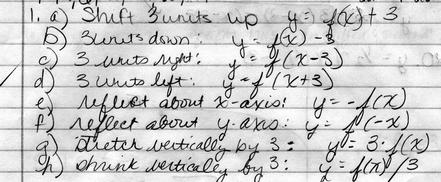 1. a) Shift 3 units up y = f(x) + 3
b) 3 units down: y = f(x) - 3
c) 3 units right: y = f(x-3)
d) 3 units left: y = f(x+3)
e) reflect about x-axis: y = -f(x)
f) reflect about y-axis: y = f(-x)
g) stretch vertically by 3: y = 3·f(x)
h) shrink vertically by 3: y = f(x)/3